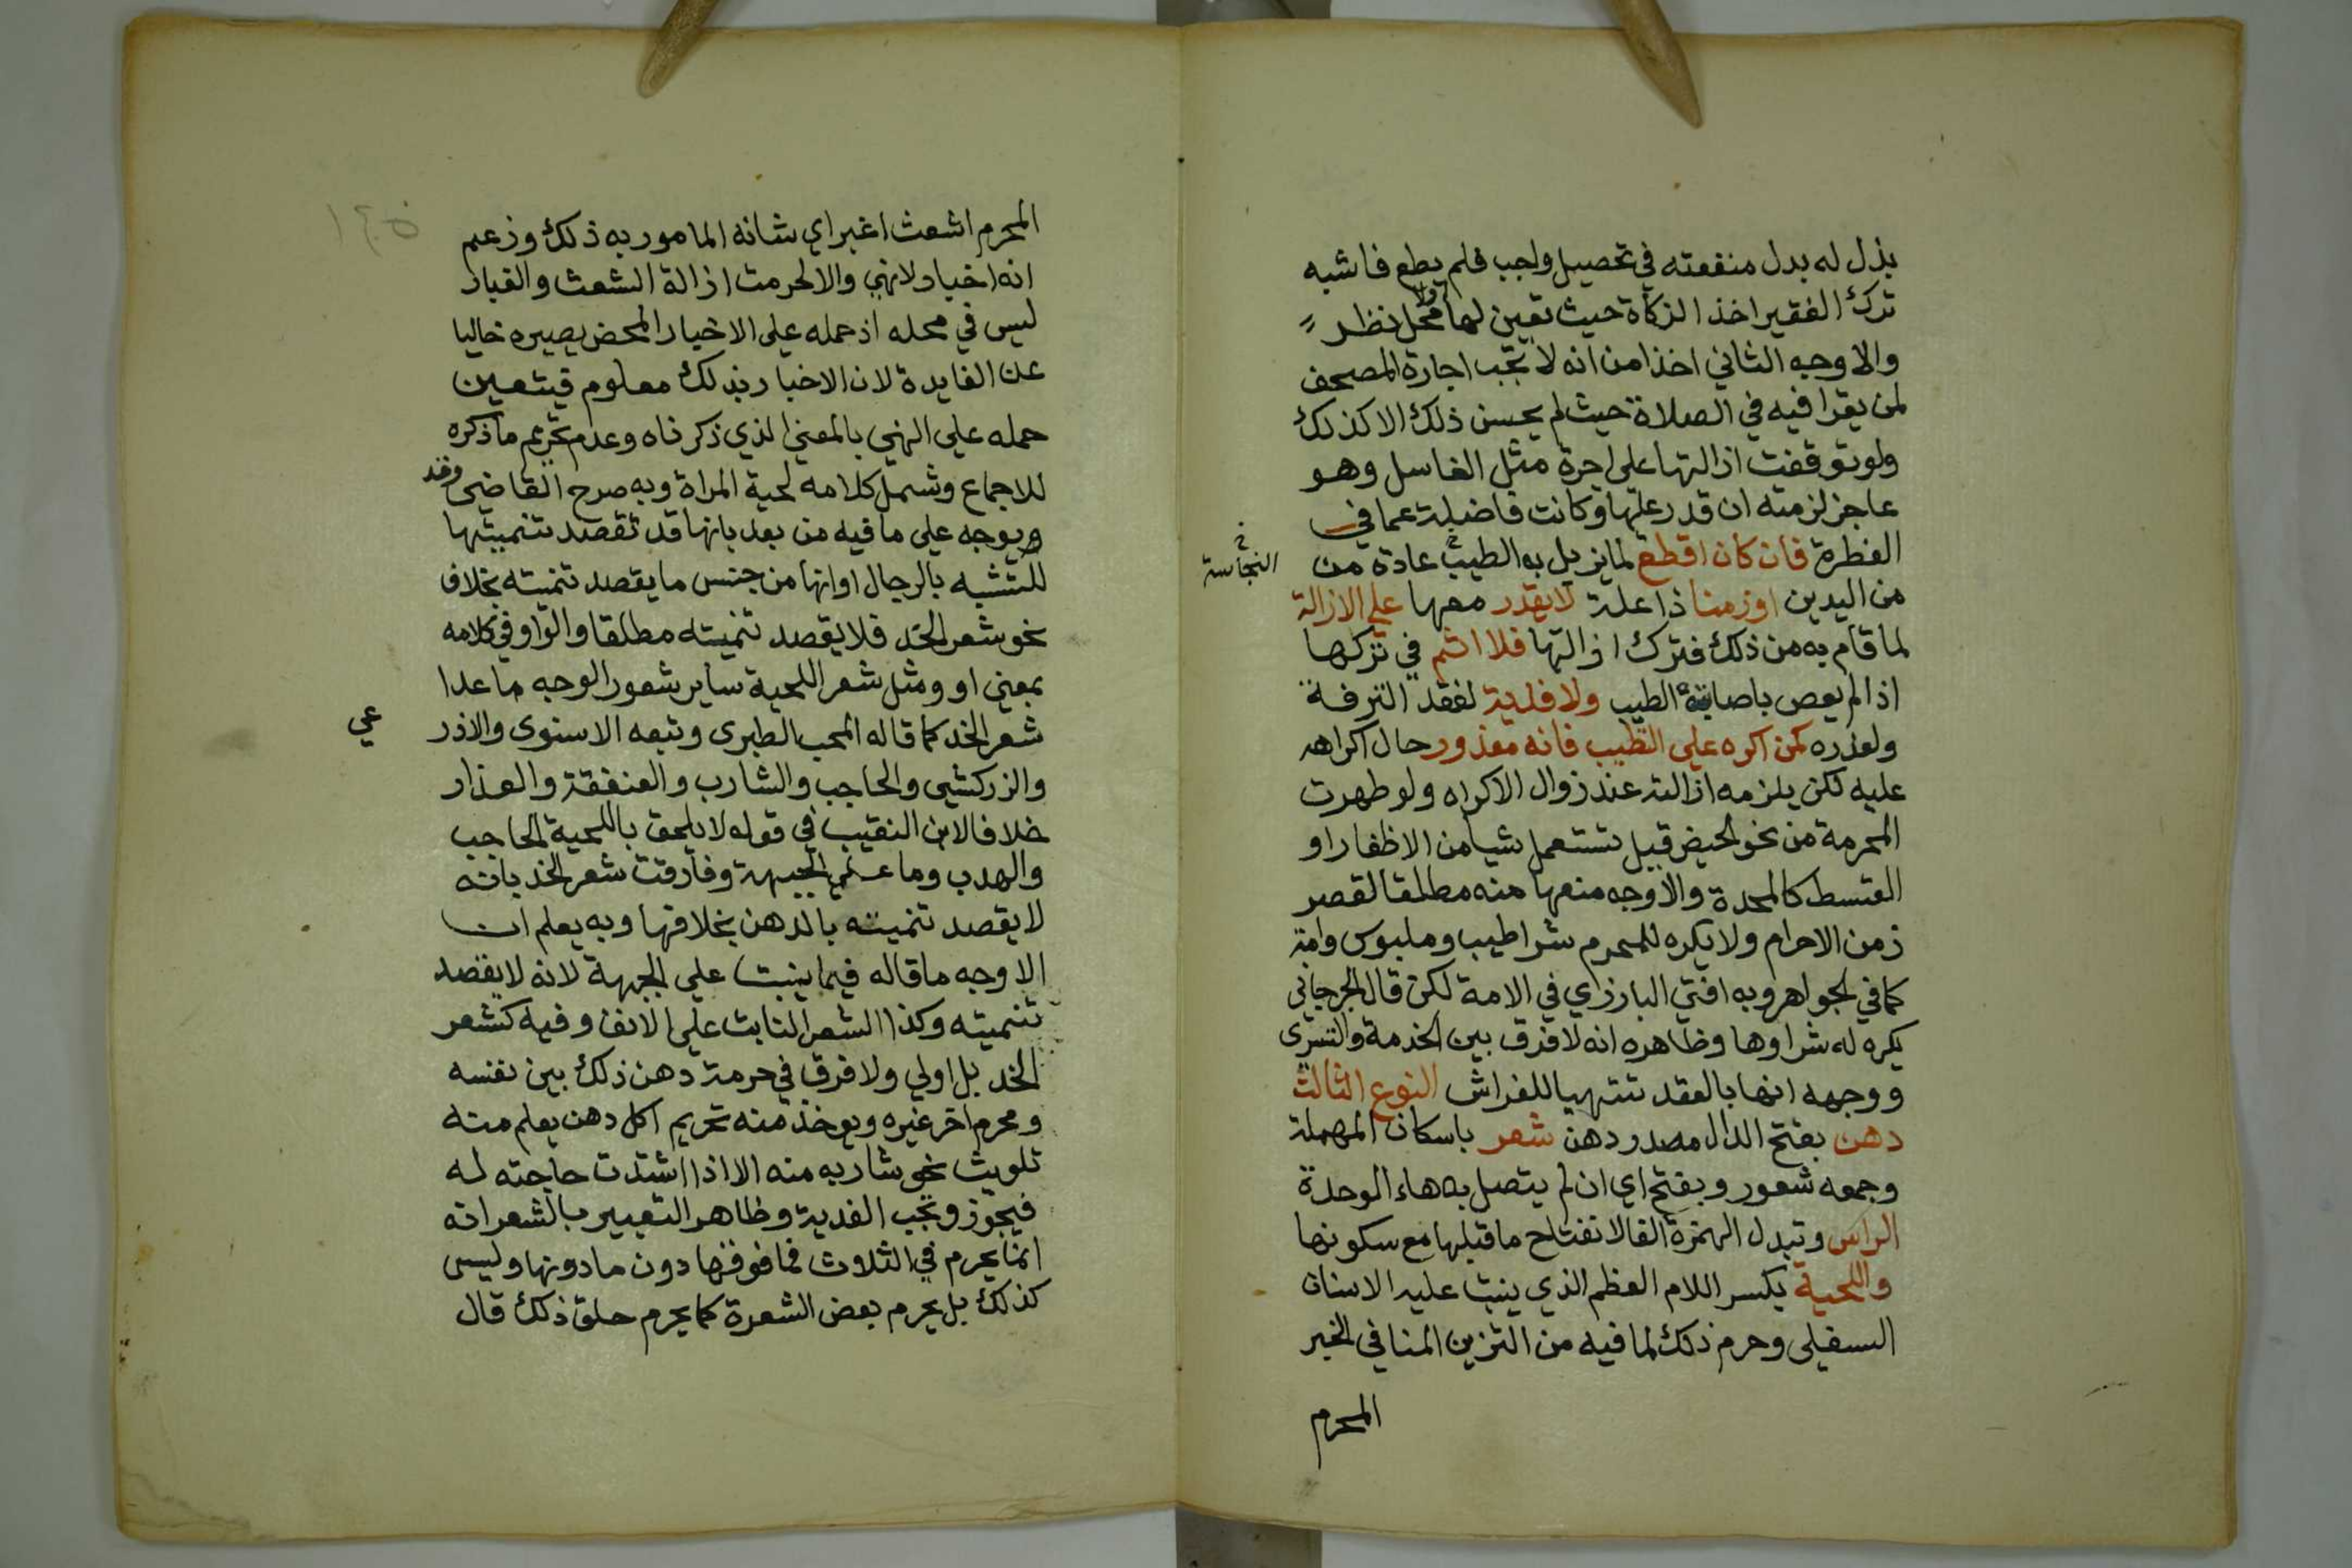 بذل له بدل منفعته في تحصيل واجب فلم يطع فاشبه
ترك الفقير اخذ الزكاة حيث تعين لها اولا محل نظر
والاوجه الثاني اخذا من انه لا تجب اجارة المصحف
لمن يقرا فيه في الصلاة حيث لم يحسن ذلك الا كذلك
ولو توقفت ازالتها على اجرة مثل الغاسل وهو
عاجز لزمته ان قدر عليها وكانت فاضلة عما في
الفطرة فان كان اقطع لما يزيل به الطيب عادة من
النجاسة
من اليدين او زمنا ذا علة لا يقدر معها على الازالة
لما قام به من ذلك فترك ازالتها فلا اثم في تركها
اذا لم يعص باصابته الطيب ولا فدية لفقد الترفة
ولعذره كمن اكره على التطيب فانه معذور حال اكراهه
عليه لكن يلزمه ازالته عند زوال الاكراه ولو طهرت
المحرمة من نحو الحيض قيل تستعمل شيا من الاظفار او
القسط كالمحدة والاوجه منعها منه مطلقا لقصر
زمن الاحرام ولا يكره للمحرم شرا طيب وملبوس وامة
كما في الجواهر وبه افتى البارزاي في الامة لكن قال الجرجاني
يكره له شراوها وظاهره انه لا فرق بين الخدمة والتسري
ووجهه انها بالعقد تتهيا للفراش النوع الثالث
دهن بفتح الدال مصدر دهن شعر باسكان المهملة
وجمعه شعور وبفتح اي ان لم يتصل به هاء الوحدة
الراس وتبدل الهمزة الفا لانفتاح ما قبلها مع سكونها
واللحية بكسر اللام العظم الذي ينبت عليه الاسنان
السفلى وحرم ذلك لما فيه من التزين المنافي لخبر
المحرم
١٤٥
المحرم اشعث اغبر اي شانه المامور به ذلك وزعم
انه اخبار لا نهي والا لحرمت ازالة الشعث والغبار
ليس في محله اذ حمله على الاخبار المحض يصيره خاليا
عن الفايدة لان الاخبار بذلك معلوم فيتعين
حمله على النهي بالمعنى الذي ذكرناه وعدم تحريم ما ذكره
للاجماع وشمل كلامه لحية المراة وبه صرح القاضي وقد
ويوجه على ما فيه من بعد بانها قد تقصد تنميتها
للتشبه بالرجال او انها من جنس ما يقصد تنميته بخلاف
نحو شعر الخد فلا يقصد تنميته مطلقا والواو في كلامه
بمعنى او ومثل شعر اللحية ساير شعور الوجه ما عدا
شعر الخد كما قاله المحب الطبري وتبعه الاسنوي والاذر
عي
والزركشي والحاجب والشارب والعنفقة والعذار
خلافا لابن النقيب في قوله لا يلحق باللحية الحاجب
والهدب وما على الجبهة وفارقت شعر الخد بانه
لا يقصد تنميته بالدهن بخلافها وبه يعلم ان
الاوجه ما قاله فيما ينبت على الجبهة لانه لا يقصد
تنميته وكذا الشعر النابت على الانف وفيه كشعر
الخد بل اولى ولا فرق في حرمة دهن ذلك بين نفسه
ومحرم اخر غيره ويوخذ منه تحريم اكل دهن يعلم منه
تلويث نحو شاربه منه الا اذا اشتدت حاجته له
فيجوز وتجب الفدية وظاهر التعبير بالشعر انه
انما يحرم في الثلاث فما فوقها دون ما دونها وليس
كذلك بل يحرم بعض الشعرة كما يحرم حلق ذلك قال